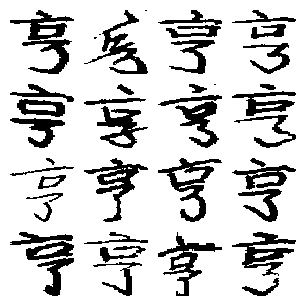 亨亨亨亨
亨亨亨亨
亨亨亨亨
亨亨亨亨